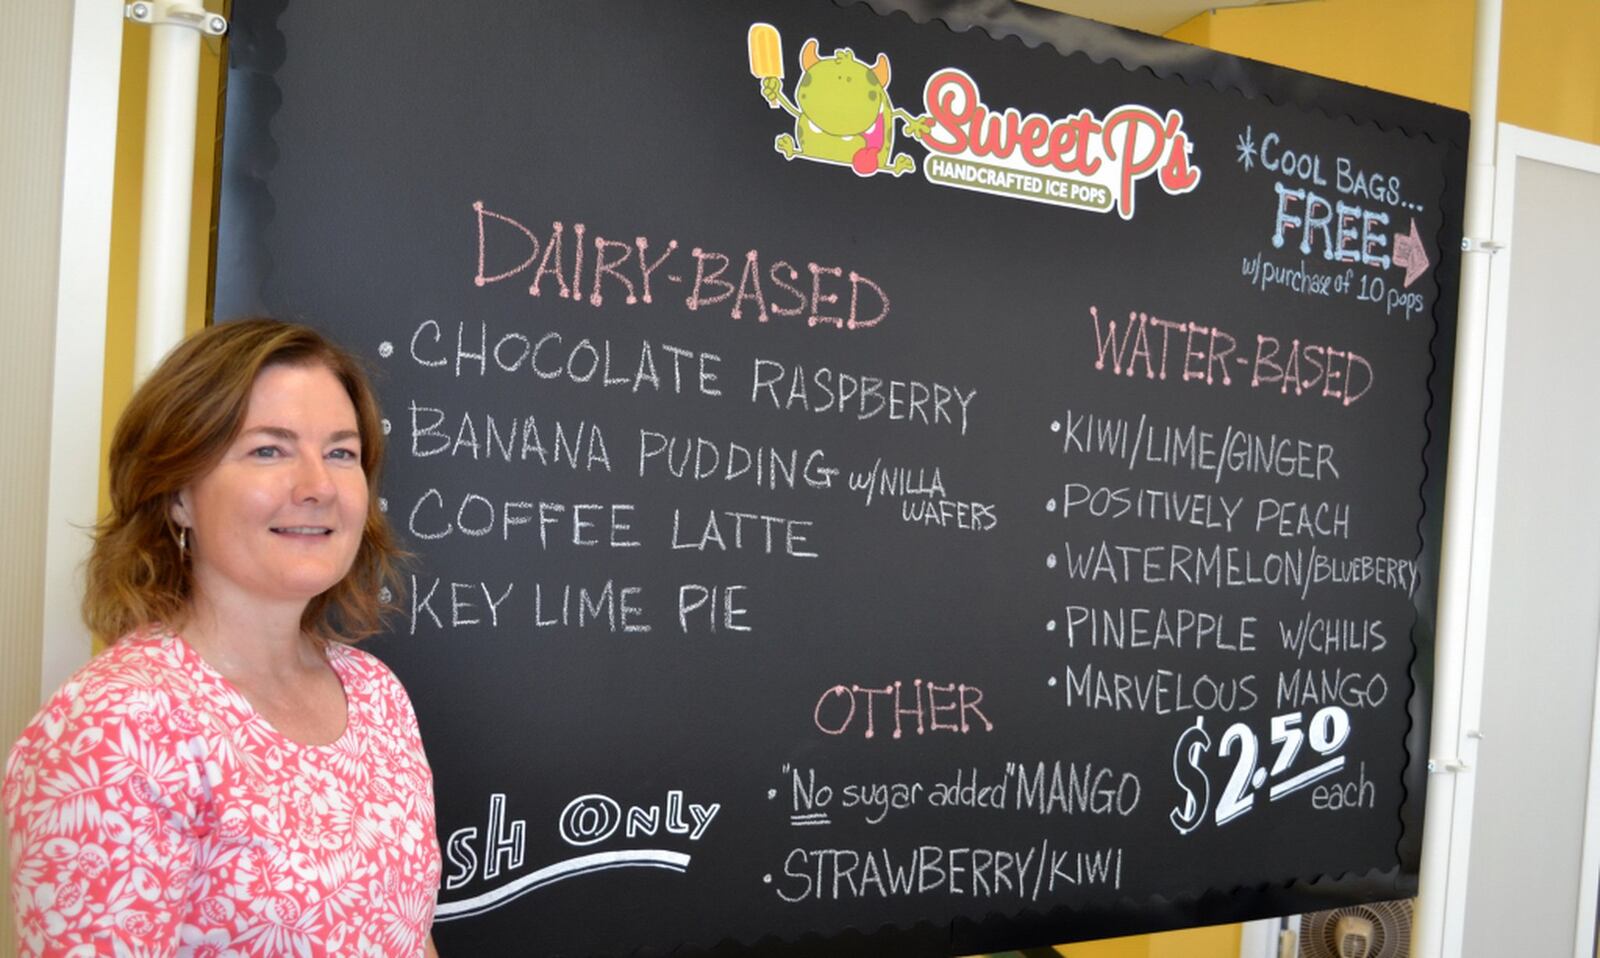 Sweet P's
HANDCRAFTED ICE POPS
*COOL BAGS...
FREE
w/purchase of 10 pops
DAIRY-BASED
• CHOCOLATE RASPBERRY
• BANANA PUDDING w/NILLA
WAFERS
• COFFEE LATTE
• KEY LIME PIE
WATER-BASED
• KIWI/LIME/GINGER
• POSITIVELY PEACH
• WATERMELON/BLUEBERRY
• PINEAPPLE W/CHILIS
• MARVELOUS MANGO
$2.50
each
OTHER
• "No sugar added" MANGO
• STRAWBERRY/KIWI
SH ONLY